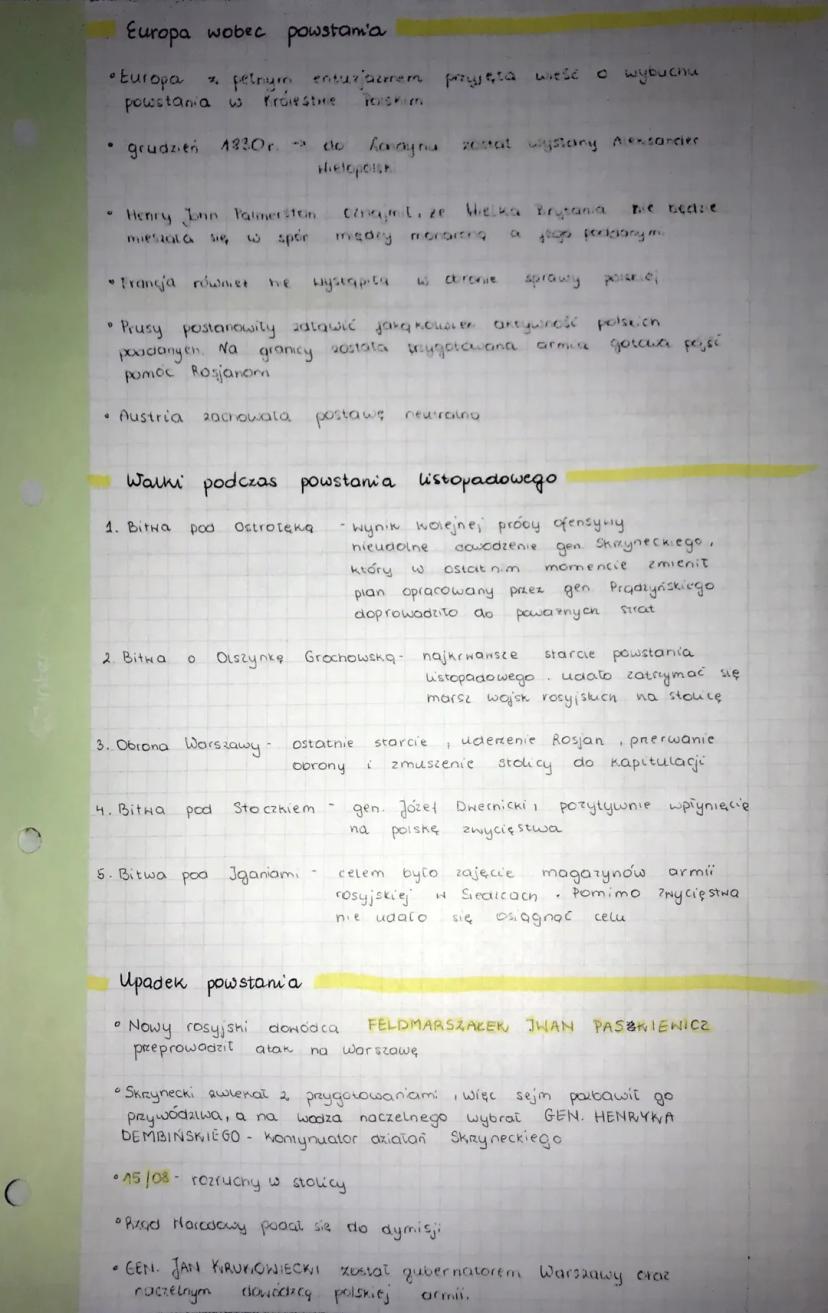 Europa wobec powstania
• Europa z pełnym entuzjazmem przyjęła wieść o wybuchu
powstania w Królestwie Polskim
• grudzień 1830r. → do Londynu został wysłany Aleksander
Wielopolski
• Henry John Palmerston oznajmił, że Wielka Brytania nie będzie
mieszała się w spór między monarchą a jego poddanymi.
• Francja również nie wystąpiła w obronie sprawy polskiej
• Prusy postanowiły zdławić jakąkolwiek aktywność polskich
poddanych. Na granicy została przygotowana armia gotowa pójść
pomóc Rosjanom
• Austria zachowała postawę neutralną
Walki podczas powstania listopadowego
1. Bitwa pod Ostrołęką - wynik kolejnej próby ofensywy
nieudolne dowodzenie gen. Skrzyneckiego,
który w ostatnim momencie zmienił
plan opracowany przez gen Prądzyńskiego
doprowadziło do poważnych strat
2. Bitwa o Olszynkę Grochowską - najkrwawsze starcie powstania
listopadowego. udało zatrzymać się
marsz wojsk rosyjskich na stolicę
3. Obrona Warszawy - ostatnie starcie, uderzenie Rosjan, przerwanie
obrony i zmuszenie stolicy do kapitulacji
4. Bitwa pod Stoczkiem - gen. Józef Dwernicki, pozytywnie wpłynięcie
na polskę zwycięstwa
5. Bitwa pod Iganiami - celem było zajęcie magazynów armii
rosyjskiej w Siedlcach. Pomimo zwycięstwa
nie udało się osiągnąć celu
Upadek powstania
• Nowy rosyjski dowódca FELDMARSZAŁEK IWAN PASZKIEWICZ
przeprowadził atak na Warszawę
• Skrzynecki zwlekał z przygotowaniami, więc sejm pozbawił go
przywództwa, a na wodza naczelnego wybrał GEN. HENRYKA
DEMBIŃSKIEGO - kontynuator działań Skrzyneckiego
• 15/08 - rozruchy w stolicy
• Rząd Narodowy podał się do dymisji
• GEN. JAN KRUKOWIECKI został gubernatorem Warszawy oraz
naczelnym dowódcą polskiej armii.